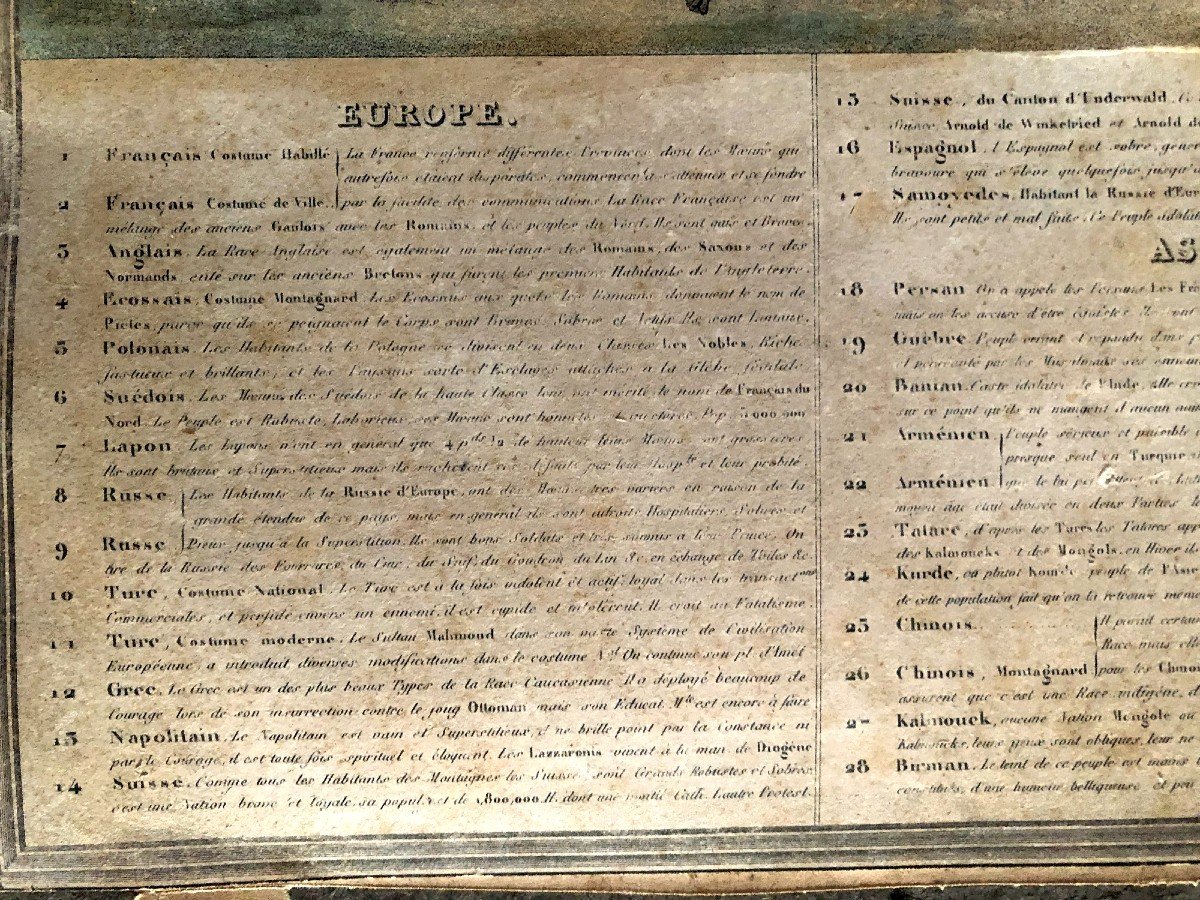 EUROPE.
1 Français Costume Habillé La France renferme différentes Provinces dont les Mœurs qui
autrefois étaient disparates, commencent à s'atténuer et se fondre
2 Français Costume de Ville. par la facilité des communications La Race Française est un
mélange des anciens Gaulois avec les Romains, et les peuples du Nord. Ils sont gais et Braves.
3 Anglais. La Race Anglaise est également un mélange des Romains, des Saxons et des
Normands, enté sur les anciens Bretons qui furent les premiers Habitants de l'Angleterre.
4 Ecossais, Costume Montagnard. Les Ecossais aux quels les Romains donnaient le nom de
Pictes, parce qu'ils se peignaient le Corps sont Braves, Sobres et Actifs Ils sont
5 Polonais. Les Habitants de la Pologne se divisent en deux Classes Les Nobles, Riches
fastueux et brillants, et les Paysans sorte d'Esclaves attachés à la Glèbe, féodale.
6 Suédois. Les Mœurs des Suédois de la haute Classe leur ont mérité le nom de Français du
Nord. Le Peuple est Robuste, Laborieux, ses Mœurs sont honnêtes et austères. Pop. 3 000 000
7 Lapon. Les Lapons n'ont en général que 4 pds 1/2 de hauteur leurs Mœurs sont grossières
Ils sont brutaux et Superstitieux mais ils rachètent ces défauts par leur Hospte et leur probité.
8 Russe Les Habitants de la Russie d'Europe, ont des Mœurs très variées en raison de la
grande étendue de ce pays, mais en général ils sont adroits Hospitaliers, Sobres et
9 Russe Pieux jusqu'à la Superstition. Ils sont bons Soldats et très soumis à leur Prince. On
tire de la Russie des Fourrures, du Cuir, du Suif, du Goudron, du Lin &c, en échange de Toiles &c
10 Turc, Costume National. Le Turc est à la fois indolent et actif, loyal dans les transactons
Commerciales, et perfide envers un ennemi, il est cupide et intolérant. Il croit au Fatalisme.
11 Turc, Costume moderne. Le Sultan Mahmoud dans son vaste Système de Civilisation
Européenne, a introduit diverses modifications dans le costume Nal On continue son pl. d'Amél
12 Grec. Le Grec est un des plus beaux Types de la Race Caucasienne Il a déployé beaucoup de
Courage lors de son insurrection contre le joug Ottoman, mais son Educat. Mle est encore à faire
13 Napolitain. Le Napolitain est vain et Superstitieux, il ne brille point par la Constance ni
par le Courage, il est toute fois spirituel et éloquent. Les Lazzaronis vivent à la man. de Diogène
14 Suisse. Comme tous les Habitants des Montagnes les Suisses sont Grands Robustes et Sobres
c'est une Nation brave et loyale, sa popul. est de 1,800,000. H. dont une moitié Cath. l'autre Protest.
15 Suisse, du Canton d'Underwald.
Suisse, Arnold de Winkelried et Arnold de
16 Espagnol, l'Espagnol est sobre,
bravoure qui s'élève quelquefois jusqu'à
17 Samoyedes, Habitant la Russie d'Eur
Ils sont petits et mal faits. Ce Peuple
AS
18 Persan On a appelé les Persans Les
mais on les accuse d'être Ils sont
19 Guèbre Peuple errant et répandu dans
et persécuté par les Musulmans ses
20 Banian. Caste idolâtre de l'Inde, elle
sur ce point qu'ils ne mangent d'aucun
21 Arménien Peuple sérieux et paisible
presque seul en Turquie
22 Arménien que le
moyen âge était divisée en deux Parties
23 Tatare, d'après les Turcs les Tatares
des Kalmoucks et des Mongols. en Hiver
24 Kurde, ou plutot Kourde peuple de l'Asie
de cette population fait qu'on la retrouve
25 Chinois. Il parait
Race mais
26 Chinois, Montagnard pour les Chinois
assurent que c'est une Race indigène,
27 Kalmouck, aucune Nation Mongole
Kalmoucks, leurs yeux sont obliques, leur
28 Birman. Le teint de ce peuple est moins
constitués, d'une humeur belliqueuse et